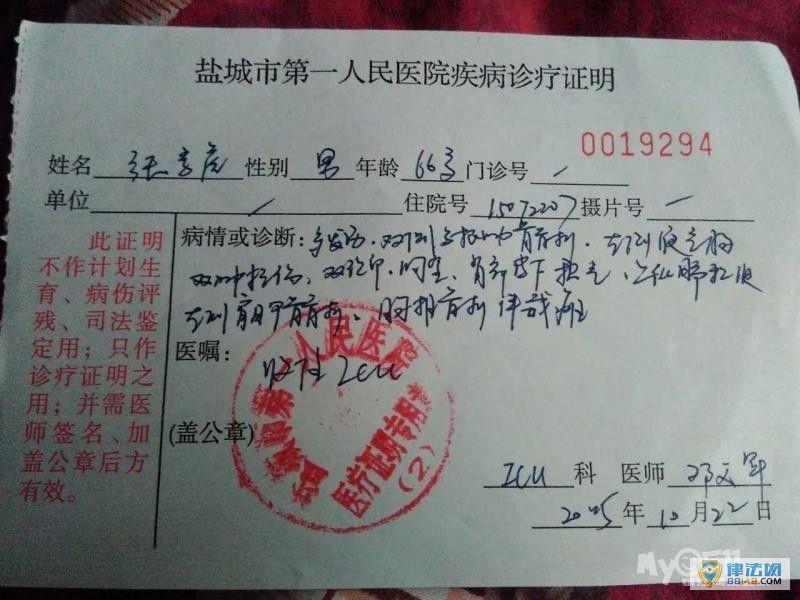 盐城市第一人民医院疾病诊疗证明
0019294
姓名 张 性别 男 年龄 66岁 门诊号 /
单位 / 住院号 15072207 摄片号 /
此证明
不作计划生
育、病伤评
残、司法鉴
定用；只作
诊疗证明之
用；并需医
师签名、加
盖公章后方
有效。
病情或诊断：多发伤、双侧多根肋骨骨折、左侧液气胸
双肺挫伤、双
左侧肩胛骨骨折、胸椎骨折伴截瘫
医嘱：
ICU
(盖公章)
人民医院
医疗证明专用章
(2)
ICU 科 医师 邓
2015 年 10 月 22 日
律法网
88148.com